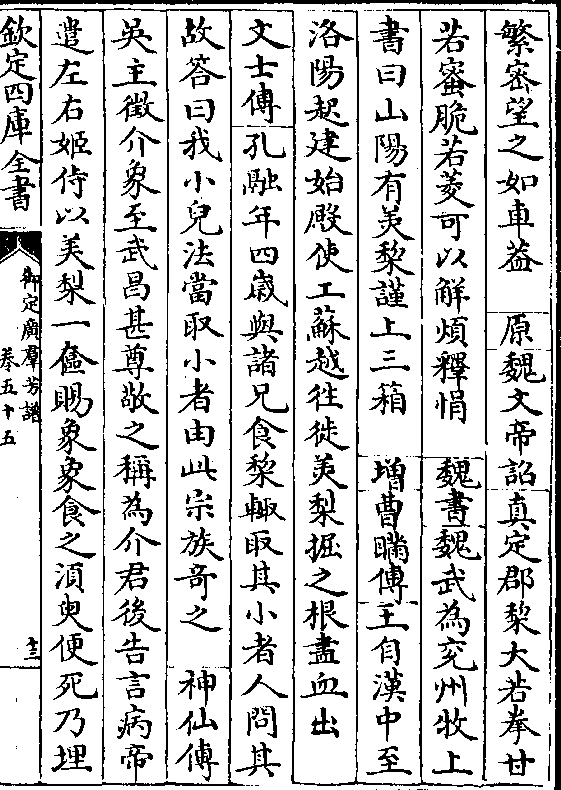 繁密望之如車葢　原魏文帝詔真定郡棃大若拳甘
若蜜脆若菱可以解煩釋悁　魏書魏武為兖州牧上
書曰山陽有美棃謹上三箱　增曹瞞傳王自漢中至
洛陽起建始殿使工蘇越徃徙美梨掘之根盡血出
文士傳孔融年四歲與諸兄食棃輙取其小者人問其
故答曰我小兒法當取小者由此宗族奇之　神仙傳
吳主徵介象至武昌甚尊敬之稱為介君後告言病帝
遣左右姬侍以美梨一奩賜象象食之湏臾便死乃埋
欽定四庫全書
御定廣羣芳譜
卷五十五
十三